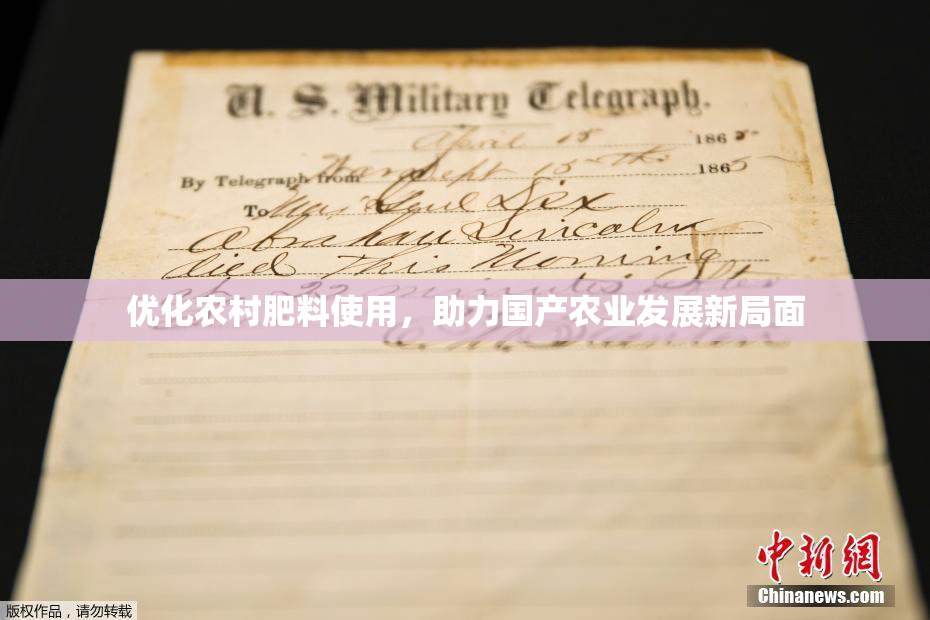 U. S. Military Telegraph.
April 15 1865
By Telegraph from War Dept 15th 1865
To Maj Genl Dix
Abraham Lincoln
died this Morning
at 22 minutes after
优化农村肥料使用，助力国产农业发展新局面
中新网
Chinanews.com
版权作品，请勿转载